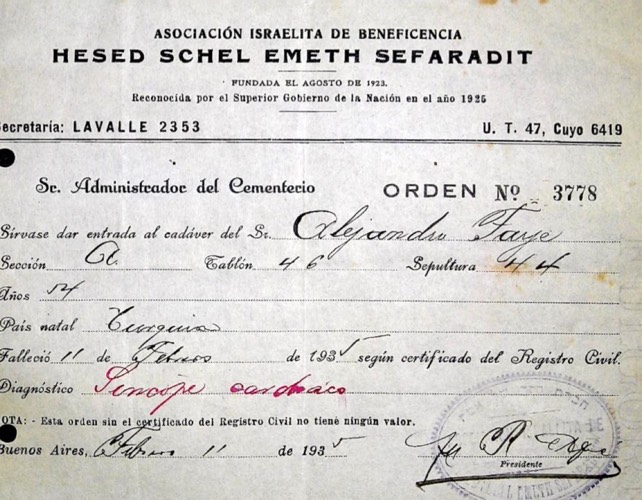 ASOCIACIÓN ISRAELITA DE BENEFICENCIA
HESED SCHEL EMETH SEFARADIT
FUNDADA EL AGOSTO DE 1923.
Reconocida por el Superior Gobierno de la Nación en el año 1926
Secretaría: LAVALLE 2353 U. T. 47, Cuyo 6419
Sr. Administrador del Cementerio ORDEN No. 3778
Sírvase dar entrada al cadáver del Sr. Alejandro
Sección A. Tablón 46 Sepultura 44
Años 54
País natal Turquia
Falleció 11 de Febrero de 1935 según certificado del Registro Civil.
Diagnóstico Sincope cardiaco
NOTA: - Esta orden sin el certificado del Registro Civil no tiene ningún valor.
Buenos Aires, Febrero 11 de 1935
Presidente